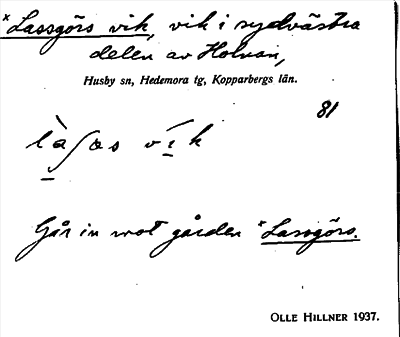 ×Lassgörs vik, vik i sydvästra
delen av Holvan,
Husby sn, Hedemora tg, Kopparbergs län.
81
vik
Går in mot gården ×Lassgörs.
OLLE HILLNER 1937.